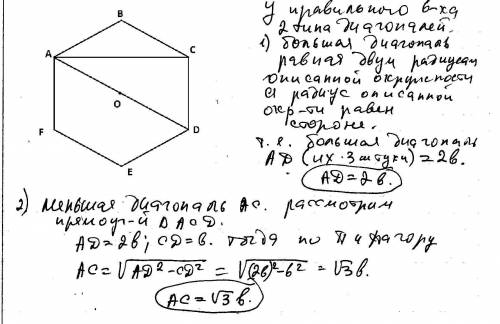 B
A
C
O
F
D
E
У правильного 6-ка
2 типа диагоналей.
1) большая диагональ
равная двум радиусам
описанной окружности
а радиус описанной
окр-ти равен
стороне.
т.е. большая диагональ
AD (их 3 штуки) = 2в.
AD = 2в.
2) меньшая диагональ AC. рассмотрим
прямоуг-й Δ ACD.
AD = 2в; CD = в. тогда по Пифагору
AC = √AD² - CD² = √(2в)² - в² = √3 в.
AC = √3 в.